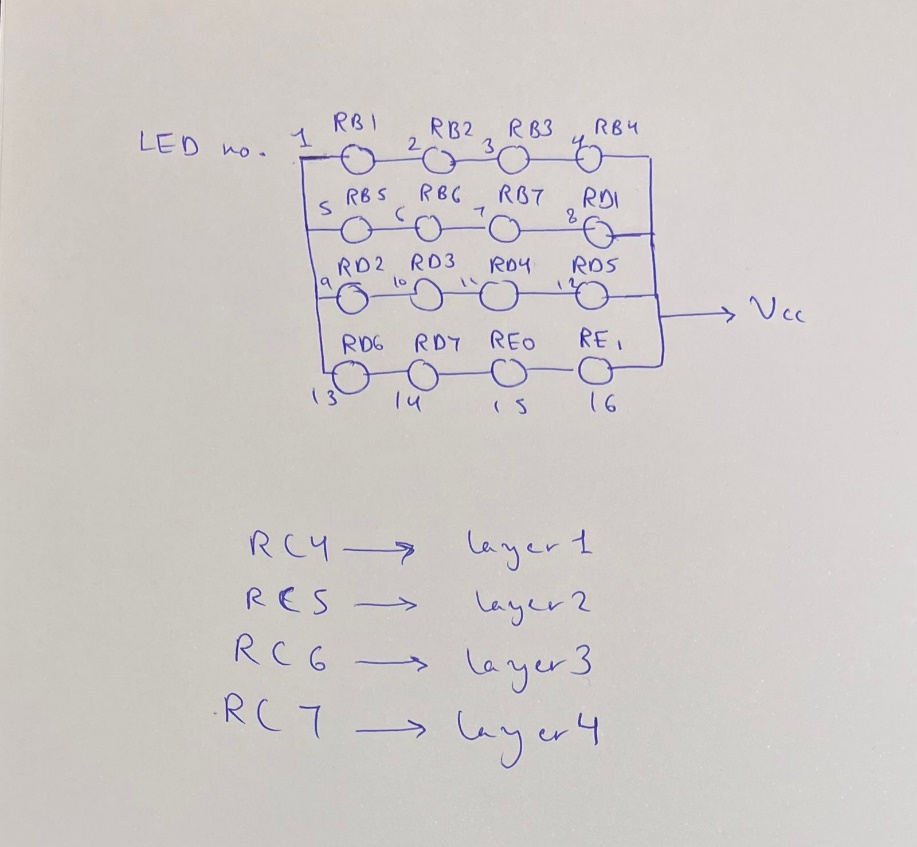 LED no. 1 RB1 2 RB2 3 RB3 4 RB4
5 RB5 6 RB6 7 RB7 8 RD1
9 RD2 10 RD3 11 RD4 12 RD5
Vcc
RD6 RD7 RE0 RE1
13 14 15 16
RC4 → layer 1
RC5 → layer 2
RC6 → layer 3
RC7 → layer 4